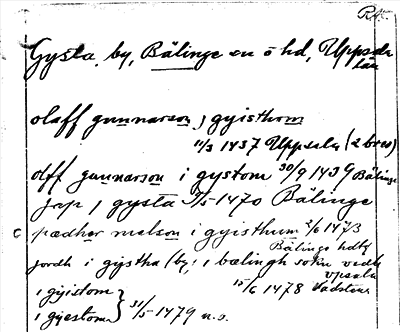 RA.
Gysta, by, Bälinge sn o hd, Uppsala
län
olaff gunnarson j gyisthom
11/3 1437 Uppsala (2 brev)
olff gunnarson i gystom 30/9 1439 Bälinge
jap j gysta 1470 Bälinge
c pædher nielson i gyisthum 2/6 1473
Bälinge hdtg
jordh i gystha (by) i bælingh sokn vedh
vpsala
15/6 1478 Vadstena
i gyistom
i gyestom } 31/5 1479 n.s.